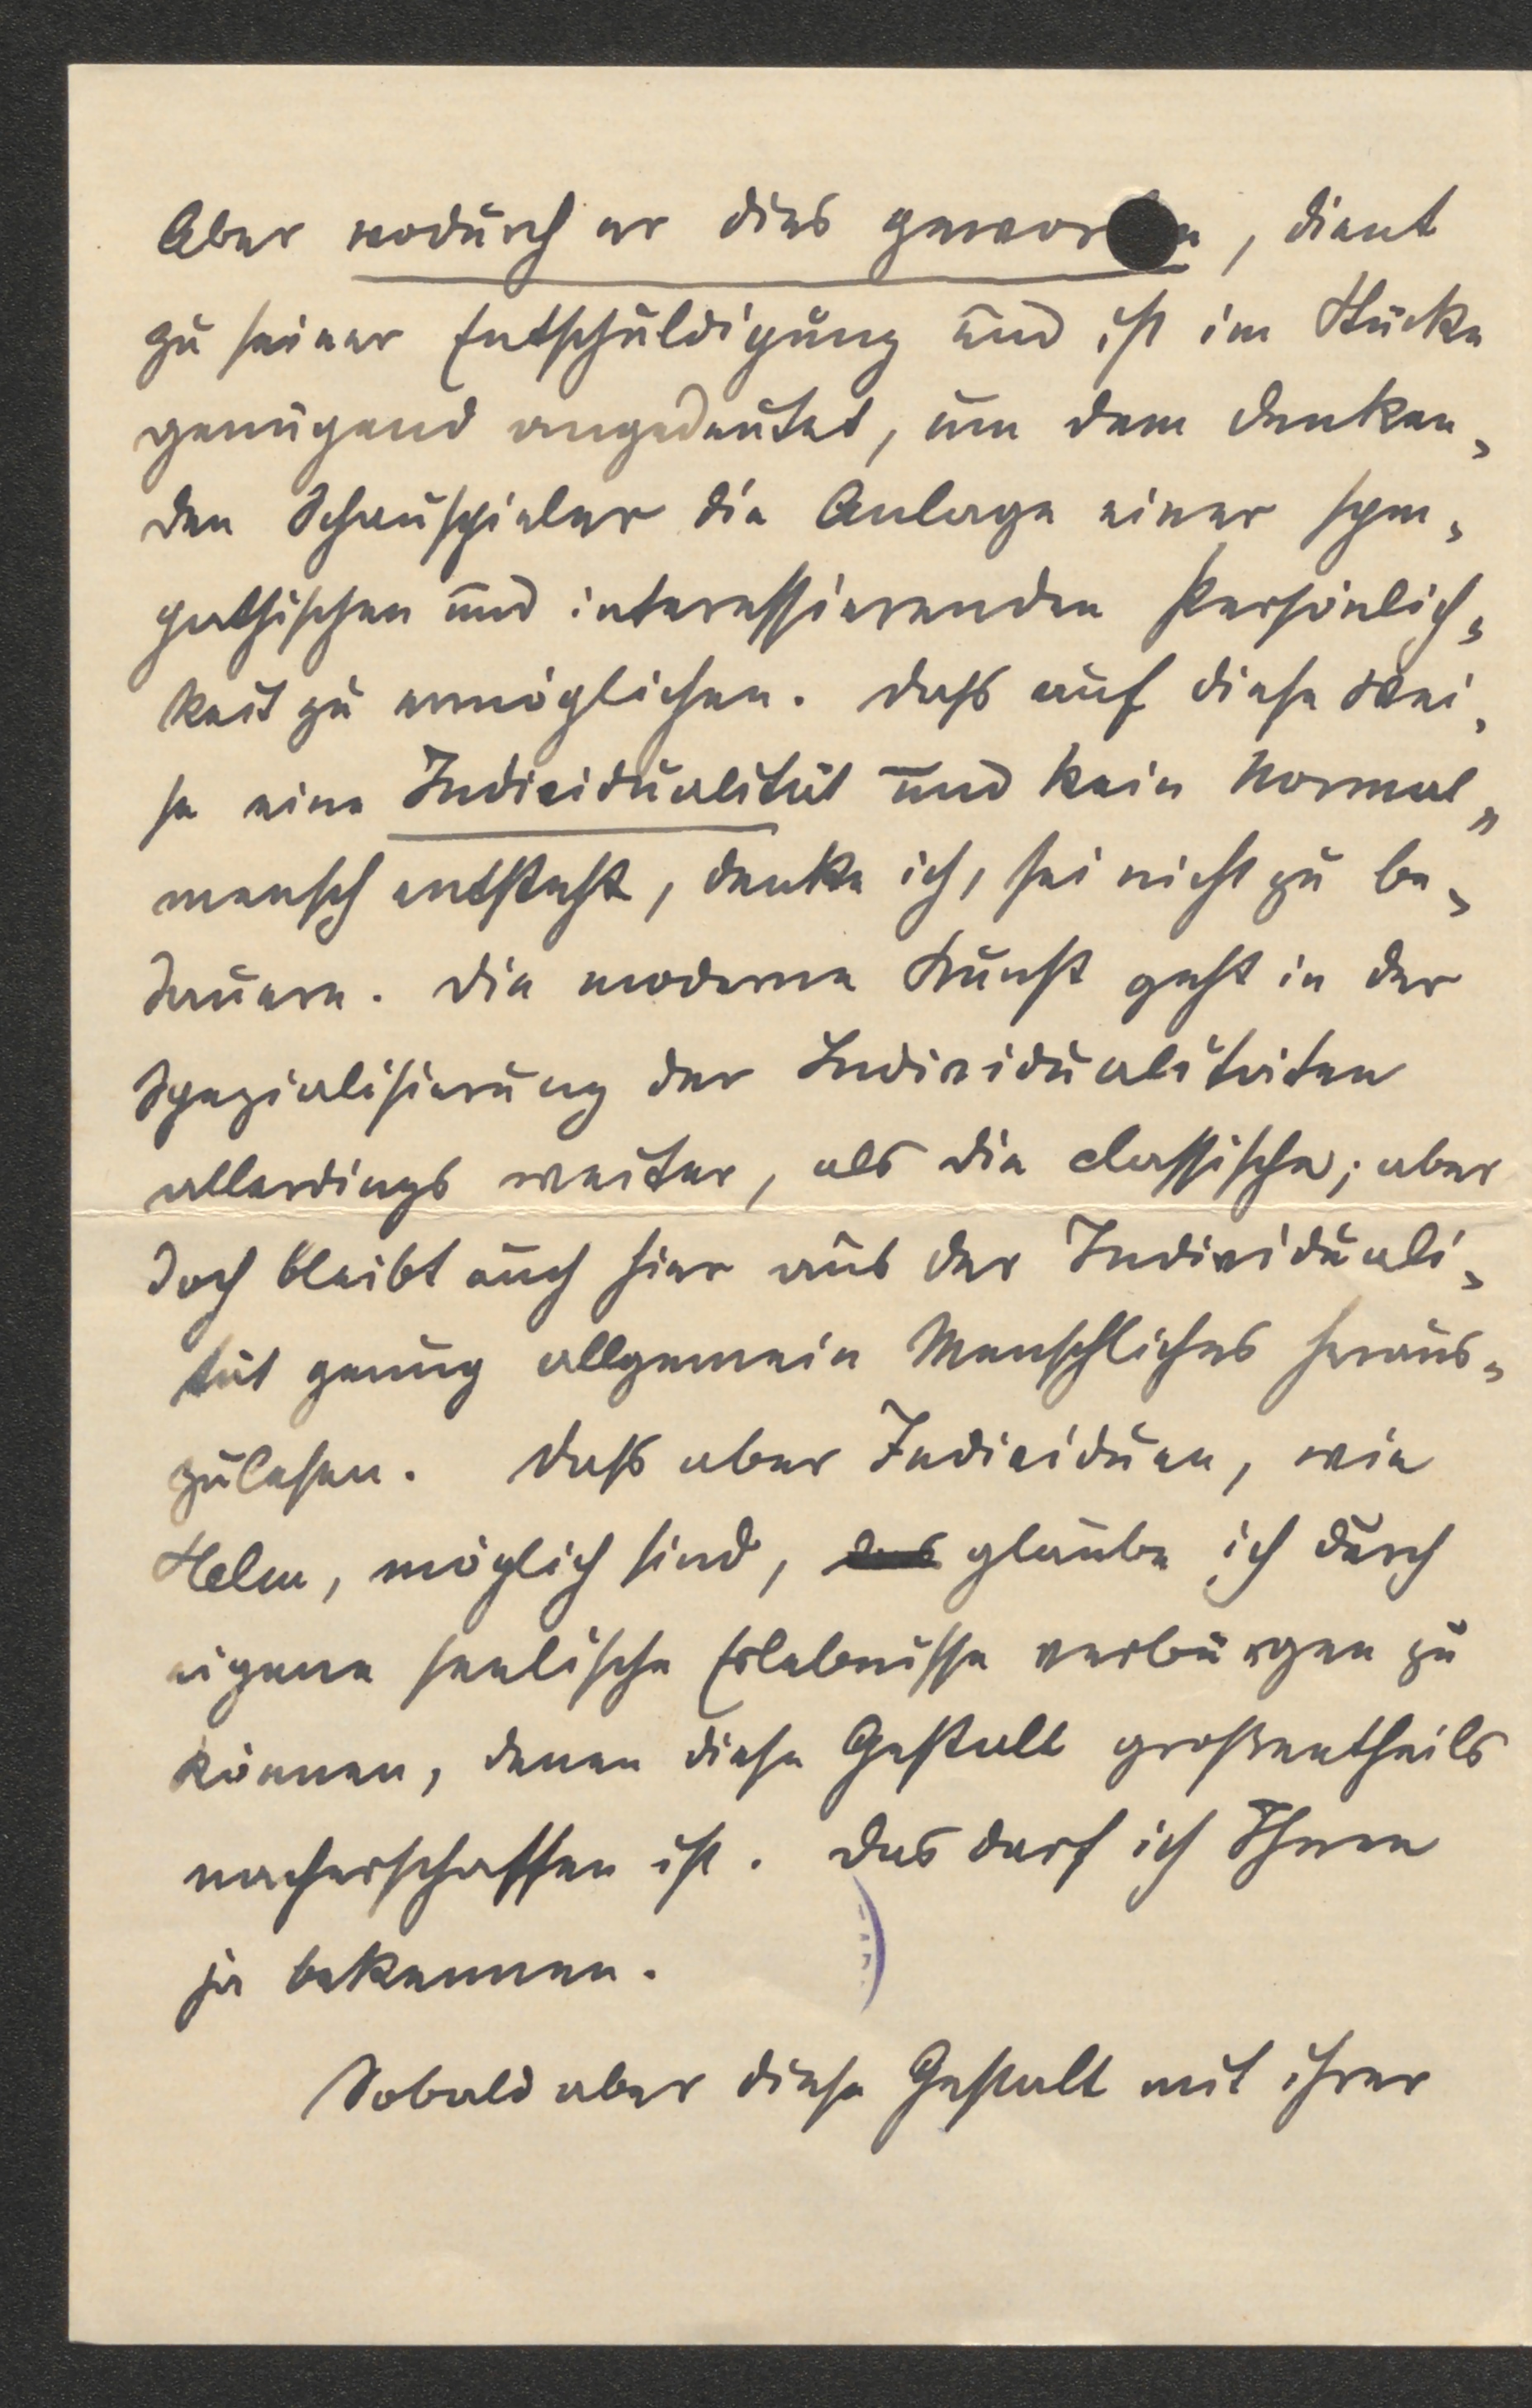 Aber wodurch er dies geworden, dient
zu seiner Entschuldigung und ist im Stücke
genügend angedeutet, um dem denken-
den Schauspieler die Anlage einer sym-
pathischen und interessierenden Persönlich-
keit zu ermöglichen. Dass auf diese Wei-
se eine Individualität und kein Normal-
mensch entsteht, denke ich, sei nicht zu be-
dauern. Die moderne Kunst geht in der
Spezialisierung der Individualitäten
allerdings weiter, als die classische; aber
doch bleibt auch hier aus der Individuali-
tät genug allgemein Menschliches heraus-
zulesen. Dass aber Individuen, wie
Helm, möglich sind, das glaube ich durch
eigene seelische Erlebnisse verbürgen zu
können, denen diese Gestalt großentheils
nacherschaffen ist. Das darf ich Ihnen
ja bekennen.
Sobald aber diese Gestalt mit ihrer